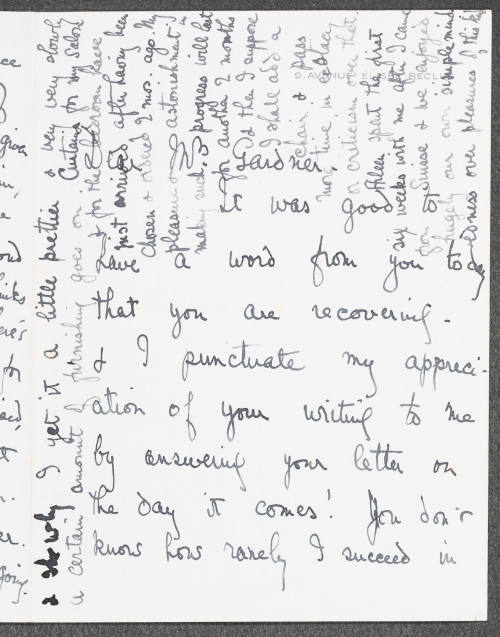 Gardner,
It was good to
have a word from you today
that you are recovering -
& I punctuate my appreci-
ation of your writing to me
by answering your letter on
the day it comes! You don't
know how rarely I succeed in
& slowly I get it a little prettier & very very slowly
a certain amount of furnishing goes on. Curtains for my Salon
& for the bedroom have
just arrived after having been
chosen & ordered 9 mos. ago. My
pleasure & astonishment in
making such progress will last
for another 2 months
& then I suppose
I shall add a
chair & pass
more time in ecstasy
or criticism over that.
Aileen spent the first
six weeks with me after I came
from Suisse & we enjoyed
hugely our own simple mind
edness over pleasures of this kind